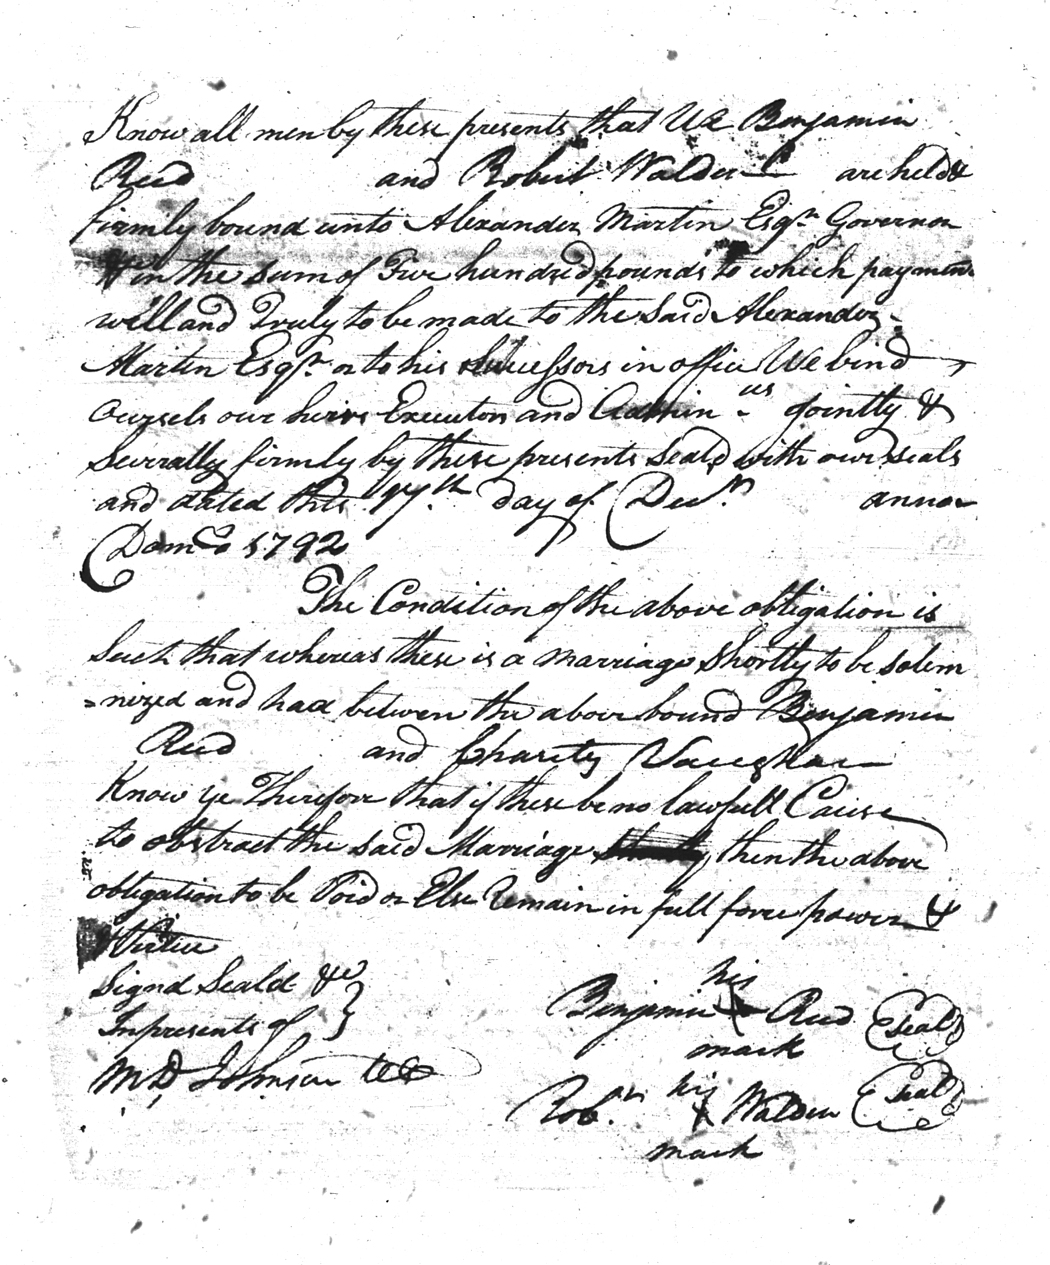 Know all men by these presents that We Benjamin
Reed and Robert Walden are held &
firmly bound unto Alexander Martin Esqr. Governor
&c in the sum of Five hundred pounds to which payment
will and Truly to be made to the said Alexander
Martin Esqr. or to his successors in office We bind
Oursels our heirs Executors and Admin.us jointly &
Severally firmly by these presents Seald with our seals
and dated this 17th. day of Decr. anno
Domo 1792
The Condition of the above obligation is
Such that whereas there is a marriage Shortly to be solem
=nized and had between the above bound Benjamin
Reed and Charity Vaughan
Know ye Therefore that if there be no lawfull Cause
to obstract the said Marriage then the above
obligation to be Void or Else Remain in full force power &
Virtue
Signd Seald &c
In presents of
M D Johnson
his
Benjamin Reed Seal
mark
his
Robt. X Walden Seal
mark